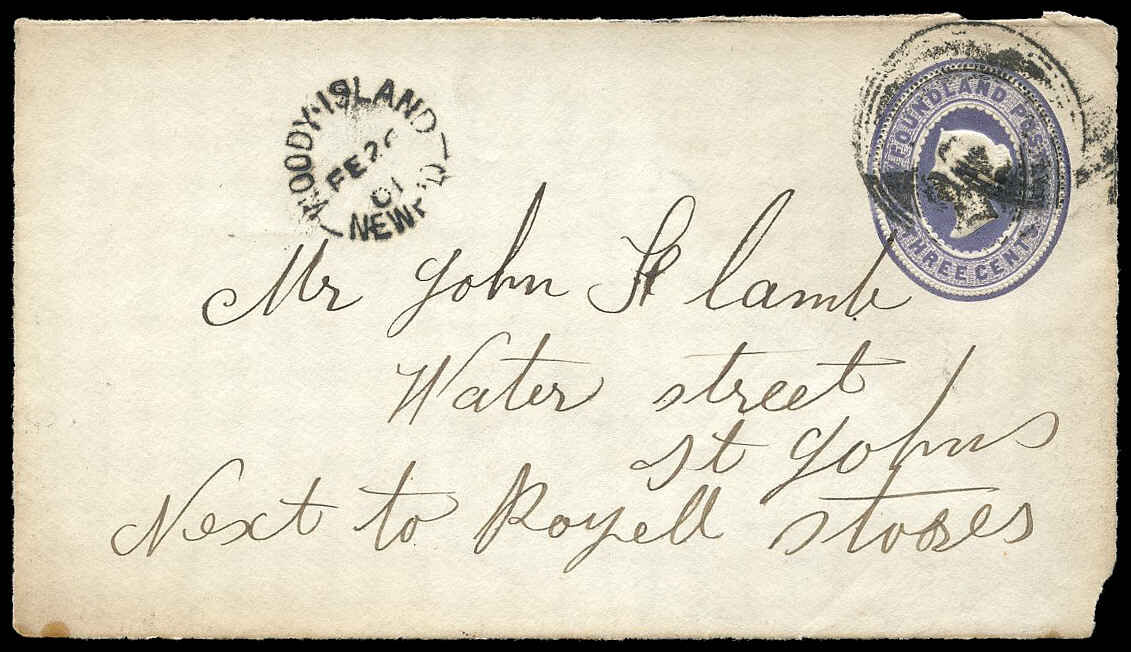 WOODY·ISLAND
FE 26
01
NEWF'D
NEWFOUNDLAND POSTAGE
THREE CENTS
Mr John St lamb
Water street
st Johns
Next to Royell stores